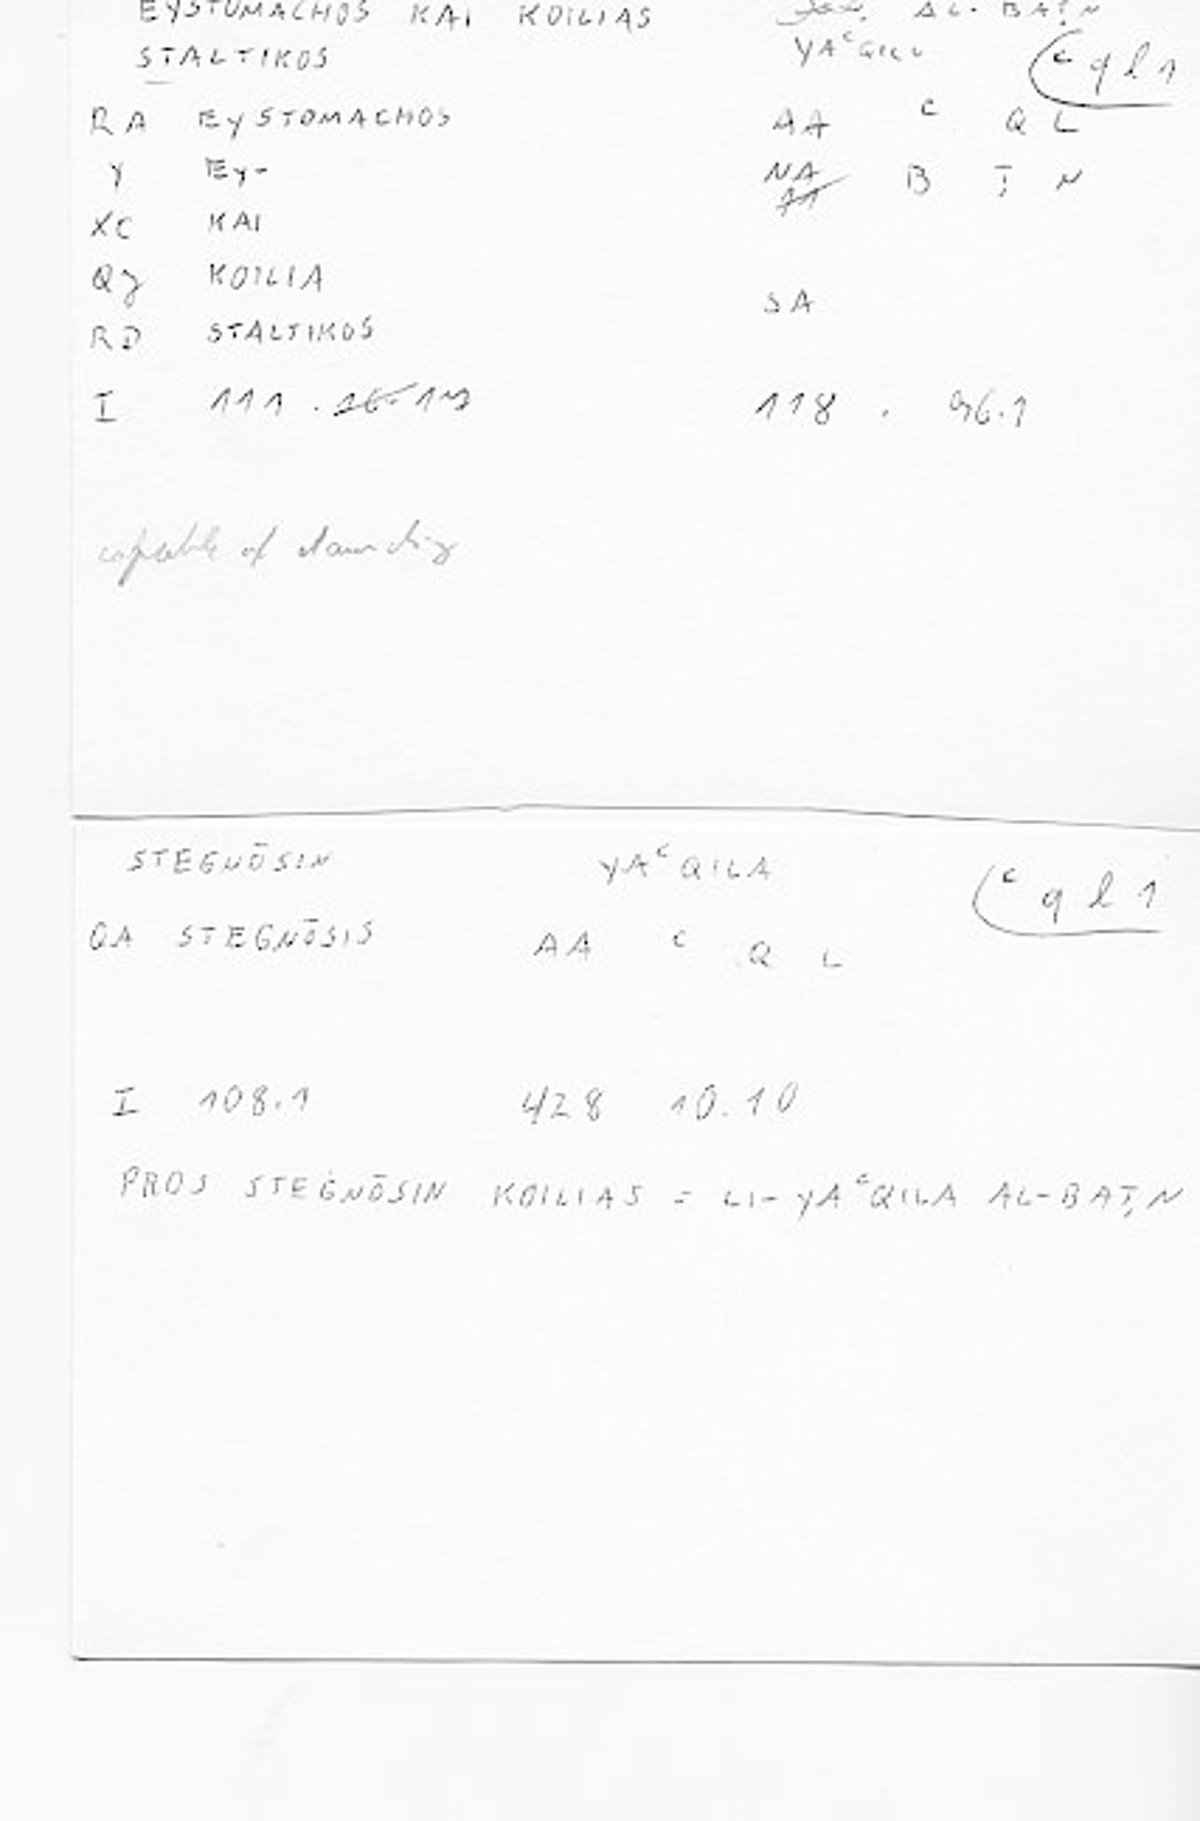 EYSTOMACHOS KAI KOILIAS AL-BAṬN
STALTIKOS YAᶜQILU ᶜql1
RA EYSTOMACHOS AA ᶜ Q L
Y EY- NA B Ṭ N
XC KAI
QJ KOILIA SA
RD STALTIKOS
I 111 . 16.17 118 . 96.1
capable of
STEGNŌSIN YAᶜQILA ᶜql1
QA STEGNŌSIS AA ᶜ Q L
I 108.1 428 10.10
PROS STEGNŌSIN KOILIAS = LI-YAᶜQILA AL-BAṬN